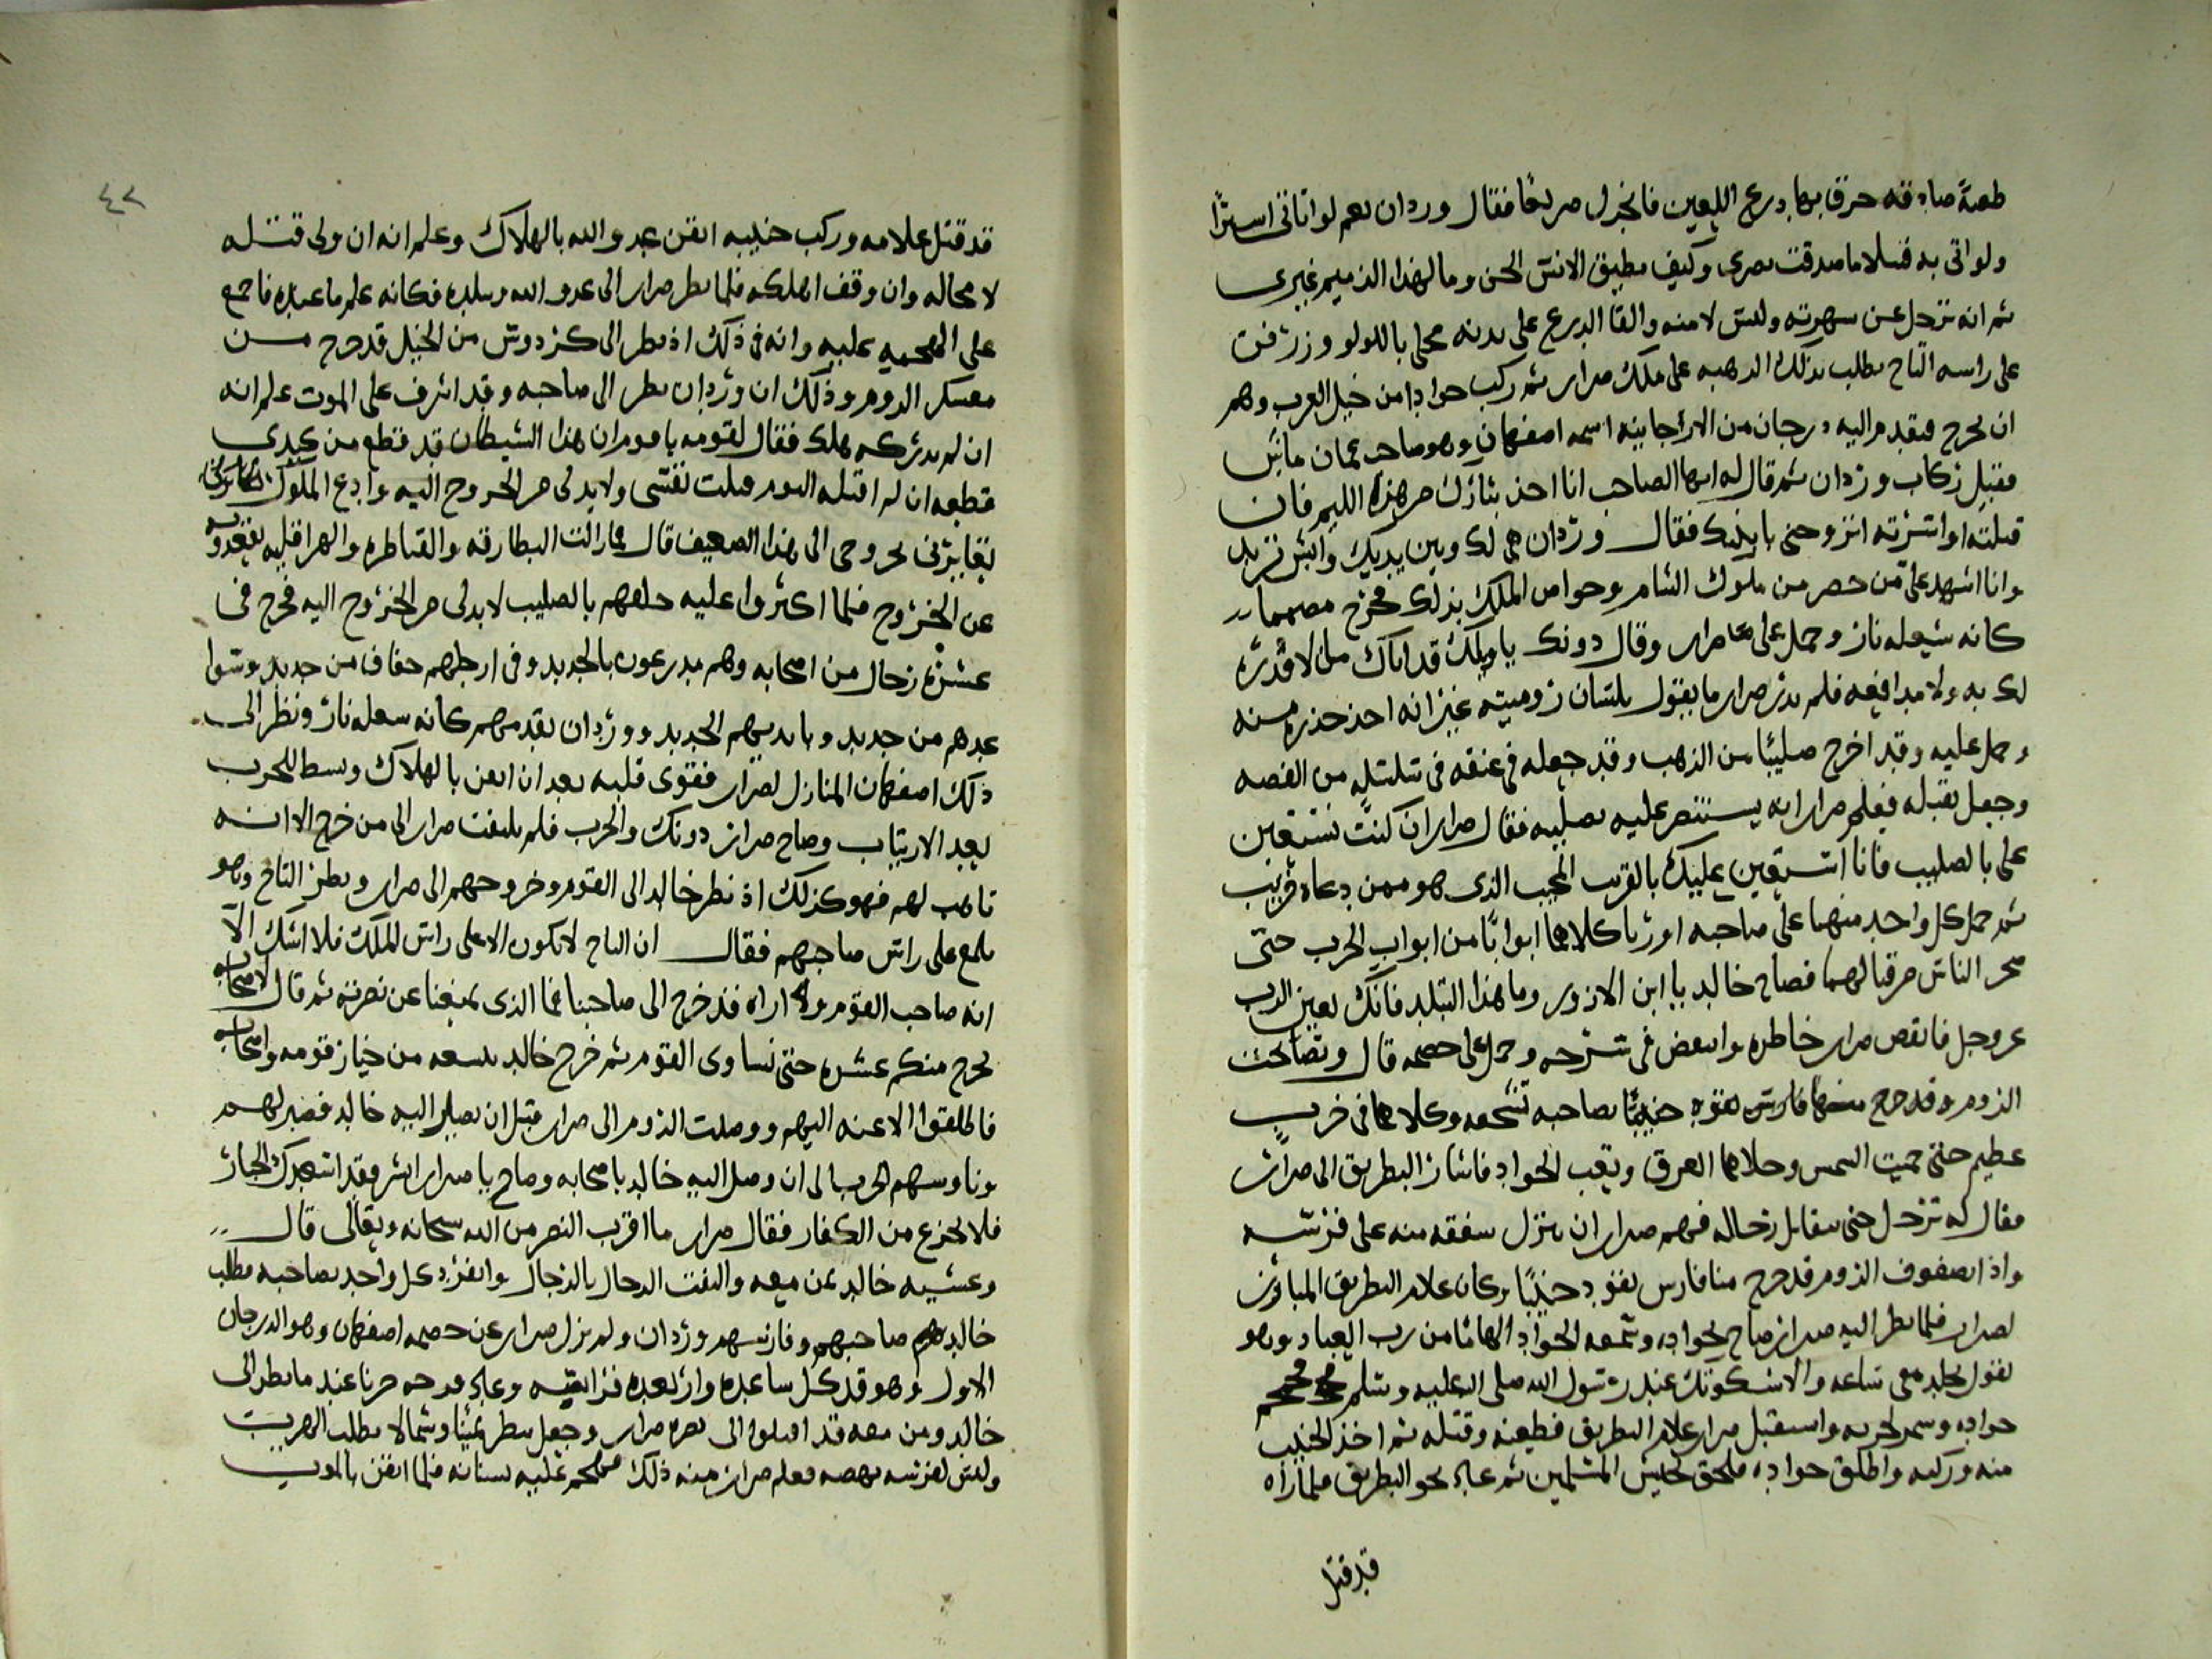 طعنة صادقه خرق بها درع اللعين فانجدل صريعا فقال وردان نعم لو اتاني اسيرا
ولو اتي به قتيلا ما صدقت بصري وكيف يطيق الانس الجن وما لهذا الذميم غيري
ثم انه ترجل عن شهوته ولبس لامته والقا الدرع على بدنه محلى باللولو وزرفن
على راسه التاج يطلب بذلك الرهبه على ملك ضرار ثم ركب جوادا من خيل العرب وهم
ان يخرج فتقدم اليه درجان من الاراجانيه اسمه اصفهان وهو صاحب عمان
فقبل ركاب وردان ثم قال له ايها الصاحب انا اخذ بثارك من هذا اللئيم فان
قتلته او اسرته اتزوجني بابنتك فقال وردان هي لك وبين يديك وايش تريد
وانا اشهد على من حضر من ملوك الشام وخواص الملك بذلك فخرج مصمما
كانه شعله نار وحمل على ضرار وقال دونك يا ويلك قد اتاك من لا قدره
لك به ولا مدافعه فلم يدر ضرار ما يقول بلسان روميته غير انه اخذ حذره منه
وحمل عليه وقد اخرج صليبا من الذهب وقد جعله في عنقه في سلسله من الفضه
وجعل يقبله فعلم ضرار انه يستنصر عليه بصليبه فقال ضرار ان كنت تستعين
علي بالصليب فانا استعين عليك بالقريب المجيب الذي هو ممن دعاه قريب
ثم حمل كل واحد منهما على صاحبه اوريا كلاهما ابوابا من ابواب الحرب حتى
ضجر الناس من قتالهما فصاح خالد يا ابن الازور وما هذا التبلد فانك بعين الرب
عز وجل فانقض ضرار خاطره وانتفض في سرجه وحمل على خصمه قال وتصايحت
الروم وقد خرج منها فارس يقود جنيبا لصاحبه تشجعه وكلاهما في حرب
عظيم حتى حميت الشمس وجلاهما العرق وتعب الجواد فاشار البطريق الى ضرار
فقال له ترجل حتى نتقابل رجاله فهم ضرار ان ينزل شفقه منه على فرسه
واذا بصفوف الروم قد خرج منها فارس يقود جنيبا وكان غلام البطريق المبارز
لضرار فلما نظر اليه ضرار صاح بجواده وتسمعه الجواد الهاما من رب العباد وهو
يقول تجلد معي ساعه والا شكوتك عند رسول الله صلى الله عليه وسلم فحمحم
جواده وشمر لجريه واستقبل ضرار غلام البطريق فطعنه وقتله ثم اخذ الجنيب
منه وركبه واطلق جواده فلحق بجيش المسلمين ثم عاد نحو البطريق فلما راه
قد قتل
٤٢
قد قتل غلامه وركب جنيبه ايقن عدو الله بالهلاك وعلم انه ان ولى قتله
لا محاله وان وقف اهلكه فلما نظر ضرار الى عدو الله وتبلده فكانه علم ما عنده فاجمع
على الهجمه عليه وانه في ذلك اذ نظر الى كردوس من الخيل قد خرج من
معسكر الروم وذلك ان وردان نظر الى صاحبه وقد اشرف على الموت علم انه
ان لم يدركه هلك فقال لقومه يا قوم ان هذا الشيطان قد قطع من كبدي
قطعه ان لم اقتله اليوم قتلت نفسي ولابد لي من الخروج اليه وادع الملوك
تعايرني بخروجي الى هذا الضعيف قال فما زالت البطارقه والقياصره والهراقليه تقعده
عن الخروج فلما اكثروا عليه حلفهم بالصليب لابد لي من الخروج اليه فخرج في
عشره رجال من اصحابه وهم مدرعون بالحديد وفي ارجلهم خفاف من حديد وسوا
عدهم من حديد وبايديهم الحديد ووردان يقدمهم كانه شعله نار ونظر الى
ذلك اصفهان المنازل لضرار فقوى قلبه بعد ان ايقن بالهلاك وبسط للحرب
بعد الارتياب وصاح ضرار دونك والحرب فلم يلتفت ضرار الى من خرج الا انه
تاهب لهم فهو كذلك اذ نظر خالد الى القوم وخروجهم الى ضرار ونظر التاج وهو
يلمع على راس صاحبهم فقال ان التاج لا يكون الا على راس الملك فلا اشك الا
انه صاحب القوم ولا اراه قد خرج الى صاحبنا فما الذي يمنعنا عن نصرته ثم قال لاصحابه
يخرج منكم عشره حتى نساوى القوم ثم خرج خالد بتسعه من خيار قومه واصحابه
فاطلقوا الاعنه اليهم ووصلت الروم الى ضرار قبل ان يصل اليه خالد فصبر لهم
وناوشهم الحرب الى ان وصل اليه خالد باصحابه وصاح يا ضرار ابشر فقد اسعدك الجبار
فلا تجزع من الكفار فقال ضرار ما اقرب النصر من الله سبحانه وتعالى قال
وغشيه خالد بمن معه والتفت الرجال بالرجال وانفرد كل واحد بصاحبه فطلب
خالد صاحبهم وفارسهم وردان ولم يزل ضرار عن خصمه اصفهان وهو الدرجان
الاول وهو قد كل ساعده وارتعدت فرايصه وعاد فرحه حزنا عند ما نظر الى
خالد ومن معه قد اقبلوا الى نصره ضرار وجعل ينظر يمينا وشمالا يطلب الهرب
وليس لفرسه نهضه فعلم ضرار منه ذلك فهجم عليه بسنانه فلما ايقن بالموت